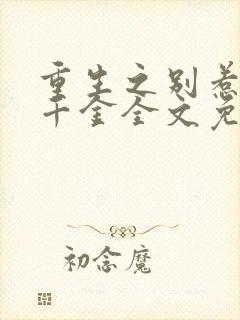 重生之别惹
千金全文免
初念魔